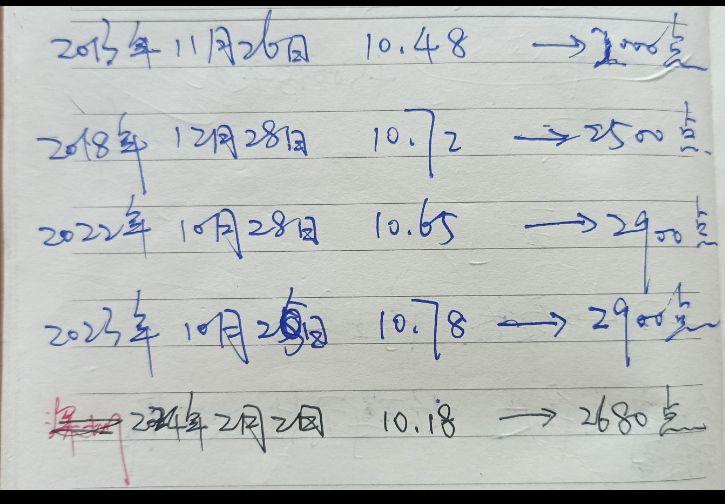 2013年 11月26日 10.48 → 2000点
2018年 12月28日 10.72 → 2500点
2022年 10月28日 10.65 → 2900点
2023年 10月2日 10.78 → 2900点
2024年2月2日 10.18 → 2680点